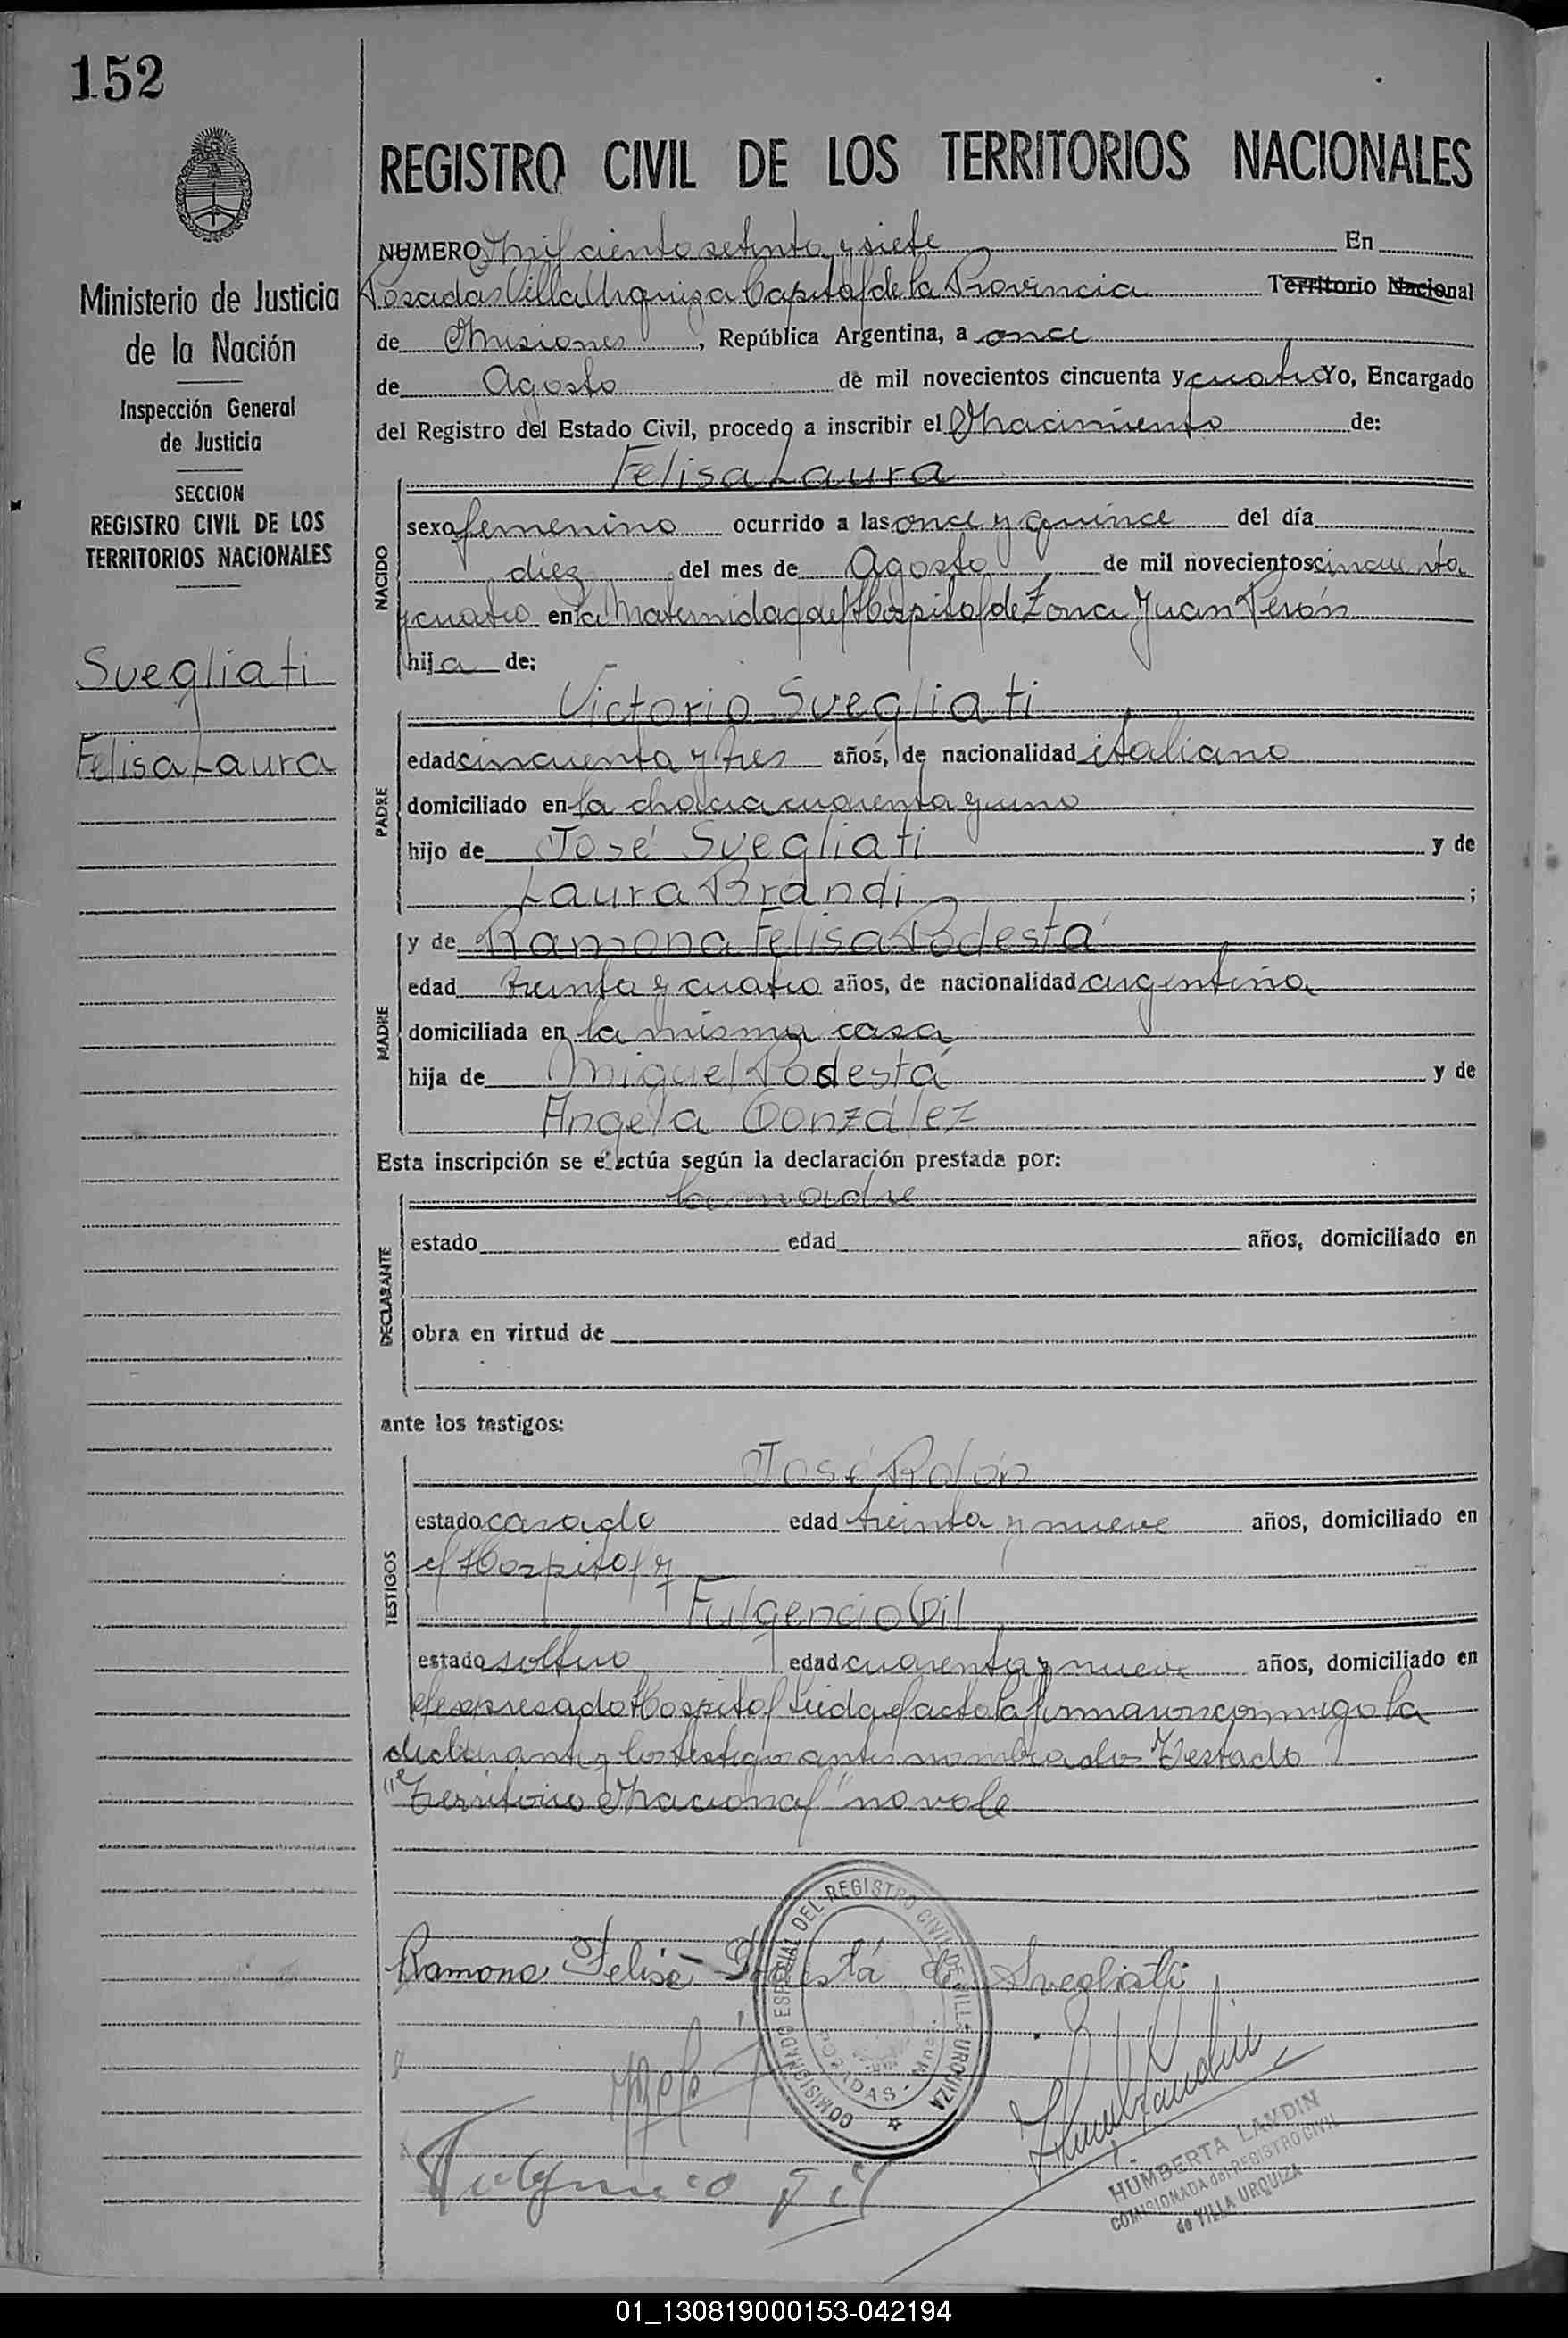 152
REGISTRO CIVIL DE LOS TERRITORIOS NACIONALES
Ministerio de Justicia
de la Nación
Inspección General
de Justicia
SECCION
REGISTRO CIVIL DE LOS
TERRITORIOS NACIONALES
Svegliati
Felisa Laura
NUMERO Mil ciento setenta y siete En
Posadas Villa Urquiza Capital de la Provincia Territorio Nacional
de Misiones, República Argentina, a once
de Agosto de mil novecientos cincuenta y cuatro Yo, Encargado
del Registro del Estado Civil, procedo a inscribir el Nacimiento de:
NACIDO
Felisa Laura
sexo femenino ocurrido a las once y quince del día
diez del mes de Agosto de mil novecientos cincuenta
y cuatro en la Maternidad del Hospital de Zona Juan Perón
hija de:
PADRE
Victorio Svegliati
edad cincuenta y tres años, de nacionalidad italiano
domiciliado en la chacra cuarenta y uno
hijo de José Svegliati y de
Laura Brandi ;
MADRE
y de Ramona Felisa Podestá
edad treinta y cuatro años, de nacionalidad argentina
domiciliada en la misma casa
hija de Miguel Podestá y de
Angela González
Esta inscripción se efectúa según la declaración prestada por:
DECLARANTE
la madre
estado edad años, domiciliado en
obra en virtud de
ante los testigos:
TESTIGOS
José Rolón
estado casado edad treinta y nueve años, domiciliado en
el Hospital y
Fulgencio Gil
estado soltero edad cuarenta y nueve años, domiciliado en
el expresado Hospital Leida el acta la firmaron conmigo la
declarante y los testigos antes nombrados Testado
"Territorio Nacional" no vale
Ramona Felisa Podestá de Svegliati
COMISIONADO ESPECIAL DEL REGISTRO CIVIL DE VILLA URQUIZA
POSADAS - Mnes.
Fulgencio Gil
HUMBERTA LANDIN
COMISIONADA del REGISTRO CIVIL
de VILLA URQUIZA
01_130819000153-042194